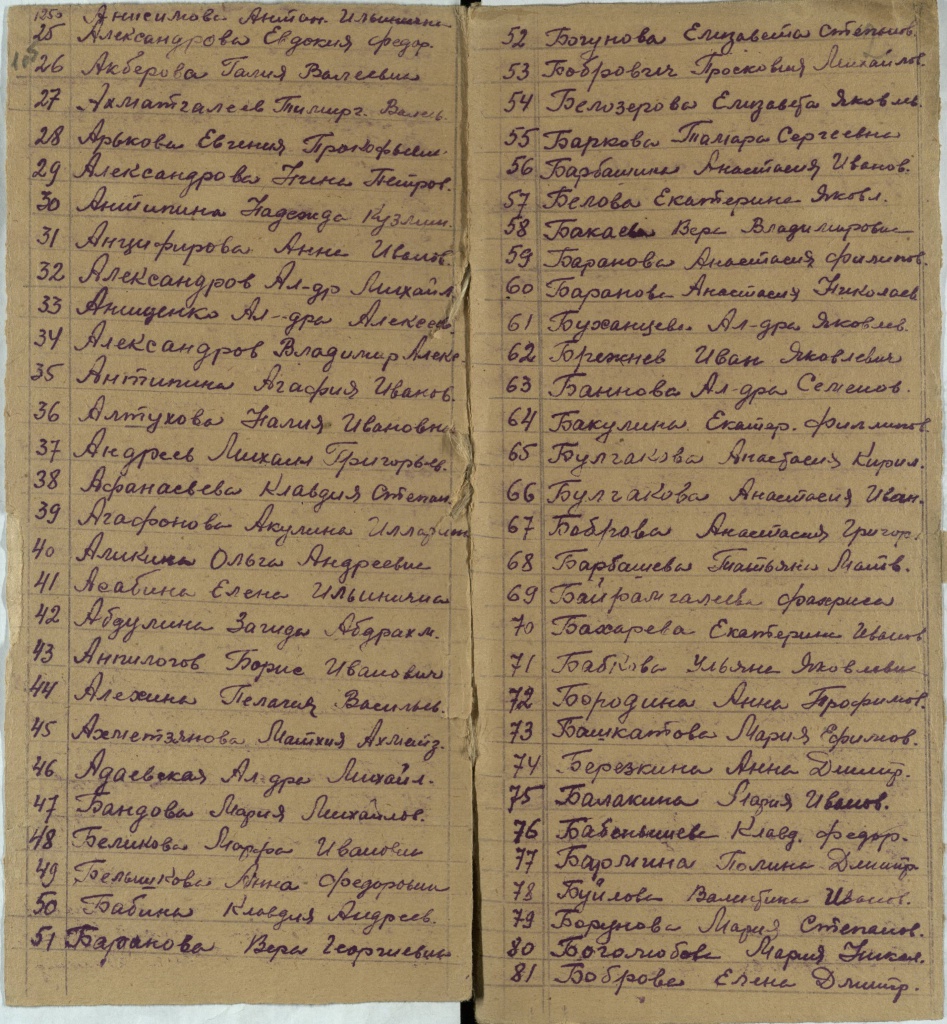 1250 Анисимова Антон. Ильинична
25 Александрова Евдокия Федор.
26 Акберова Галия Валеевна
27 Ахматгалеев Тимирг. Валеев.
28 Арькова Евгения Прокофьевн.
29 Александрова Нина Петров.
30 Антипина Надежда Кузмин.
31 Анцифирова Анна Иванов.
32 Александров Ал-др Михайл
33 Анищенко Ал-дра Алексеев.
34 Александров Владимир Алекс
35 Антипина Агафия Иванов.
36 Алтухова Налия Ивановна
37 Андреев Михаил Григорьев.
38 Афанасьева Клавдия Степан.
39 Агафонова Акулина Илларион
40 Аликина Ольга Андреевна
41 Асабина Елена Ильинична
42 Абдулина Загида Абдрахм.
43 Анпилогов Борис Иванович
44 Алехина Пелагия Васильев.
45 Ахметзянова Матхия Ахметз.
46 Адаевская Ал-дра Михайл.
47 Бандова Мария Михайлов.
48 Беликова Марфа Ивановна
49 Бельшкова Анна Федоровна
50 Бабина Клавдия Андреев.
51 Баранова Вера Георгиевна
52 Богунова Елизавета Степанов.
53 Бобрович Просковия Михайлов.
54 Белозерова Елизавета Яковлев.
55 Баркова Тамара Сергеевна
56 Барбашина Анастасия Иванов.
57 Белова Екатерина Яковл.
58 Бакаева Вера Владимировна
59 Баранова Анастасия Филипов.
60 Баранова Анастасия Николаев
61 Буханцева Ал-дра Яковлев.
62 Брежнев Иван Яковлевич
63 Баннова Ал-дра Семенов.
64 Бакулина Екатер. Филлипов.
65 Булгакова Анастасия Кирил.
66 Булгакова Анастасия Иван.
67 Боброва Анастасия Григор.
68 Барбашева Татьяна Матв.
69 Байрамгалеева Фахриса
70 Бахарева Екатерина Иванов
71 Бабкова Ульяна Яковлевна
72 Бородина Анна Трофимов.
73 Башкатова Мария Ефимов.
74 Березкина Анна Дмитр.
75 Балакина Мария Иванов.
76 Бабенышева Клавд. Федор.
77 Бармина Полина Дмитр
78 Буйлова Валентина Иванов.
79 Борунова Мария Степанов.
80 Боголюбова Мария Никол.
81 Боброва Елена Дмитр.